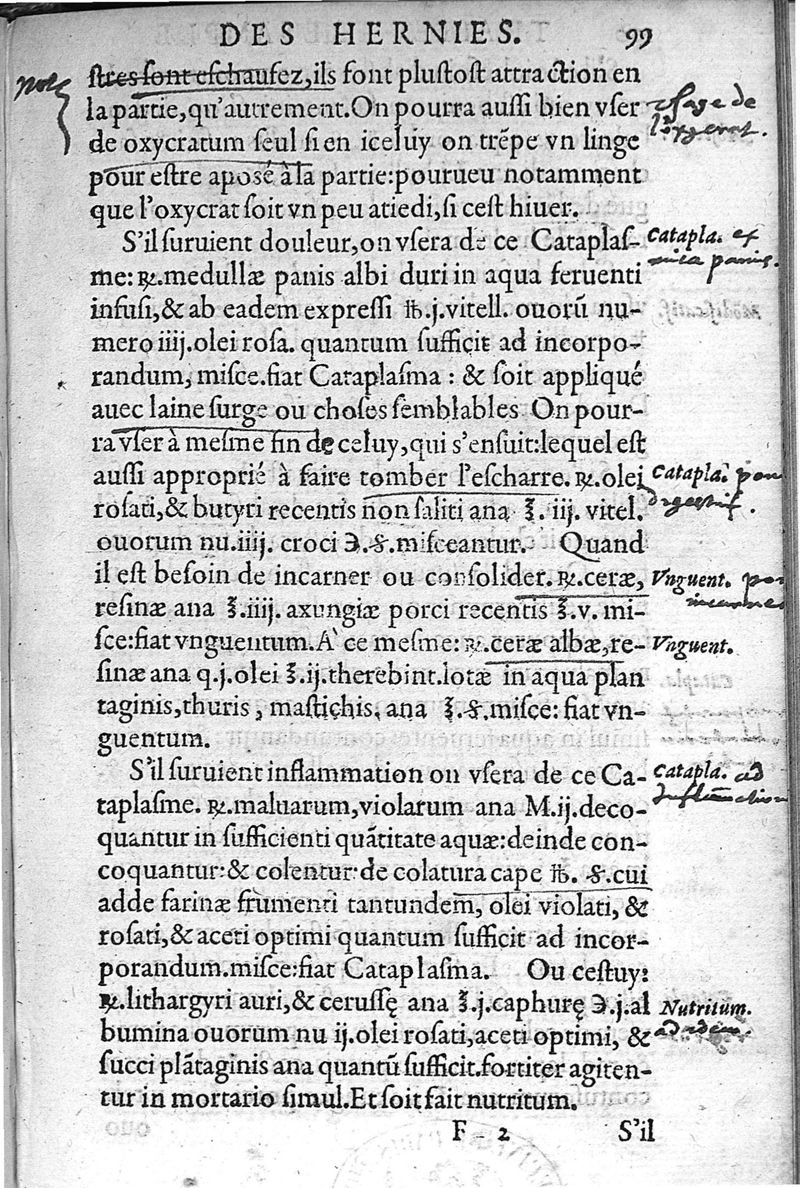 DES HERNIES. 99
stres sont eschaufez, ils font plustost attraction en
la partie, qu'autrement. On pourra aussi bien vser
de oxycratum seul si en iceluy on trẽpe vn linge
pour estre aposé à la partie: pourueu notamment
que l'oxycrat soit vn peu atiedi, si cest hiuer.
S'il suruient douleur, on vsera de ce Cataplas-
me: ℞. medullæ panis albi duri in aqua feruenti
infusi, & ab eadem expressi ℔.j. vitell. ouorũ nu-
mero iiij. olei rosa. quantum sufficit ad incorpo-
randum, misce. fiat Cataplasma : & soit appliqué
auec laine surge ou choses semblables On pour-
ra vser à mesme fin de celuy, qui s'ensuit: lequel est
aussi approprié à faire tomber l'escharre. ℞. olei
rosati, & butyri recentis non saliti ana ℥. iij. vitel.
ouorum nu. iiij. croci ℈.ß. misceantur. Quand
il est besoin de incarner ou consolider. ℞. ceræ,
resinæ ana ℥.iiij. axungiæ porci recentis ℥.v. mi-
sce: fiat vnguentum. A' ce mesme: ℞. ceræ albæ, re-
sinæ ana q.j. olei ℥.ij. therebint. lotæ in aqua plan
taginis, thuris, mastichis, ana ℥.ß. misce: fiat vn-
guentum.
S'il suruient inflammation on vsera de ce Ca-
taplasme. ℞. maluarum, violarum ana M.ij. deco-
quantur in sufficienti quãtitate aquæ: deinde con-
coquantur: & colentur: de colatura cape ℔. ß. cui
adde farinæ frumenti tantundem, olei violati, &
rosati, & aceti optimi quantum sufficit ad incor-
porandum. misce: fiat Cataplasma. Ou cestuy:
℞. lithargyri auri, & cerussę ana ℥.j. caphurę ℈.j. al
bumina ouorum nu ij. olei rosati, aceti optimi, &
succi plãtaginis ana quantũ sufficit. fortiter agiten-
tur in mortario simul. Et soit fait nutritum.
F 2 S'il
Vsage de
l'oxycrat.
Catapla. ex
mica panis.
Catapla. pour
digestif.
Vnguent. pour
incarner
Vnguent.
Catapla. ad
Inflãmation
Nutritum.
ad idem.